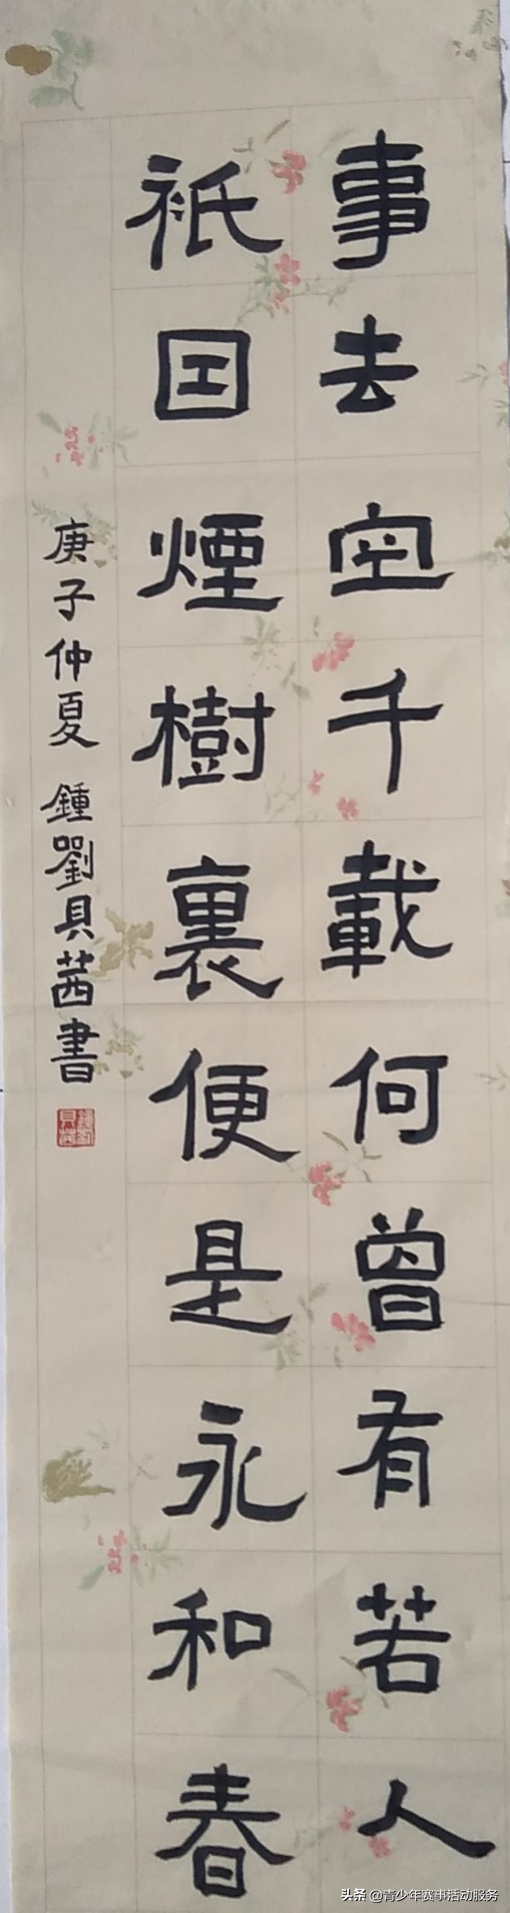 事去空千載何曾有若人
衹囙煙樹裏便是永和春
庚子仲夏 鍾劉貝茜書
头条 @青少年赛事活动服务